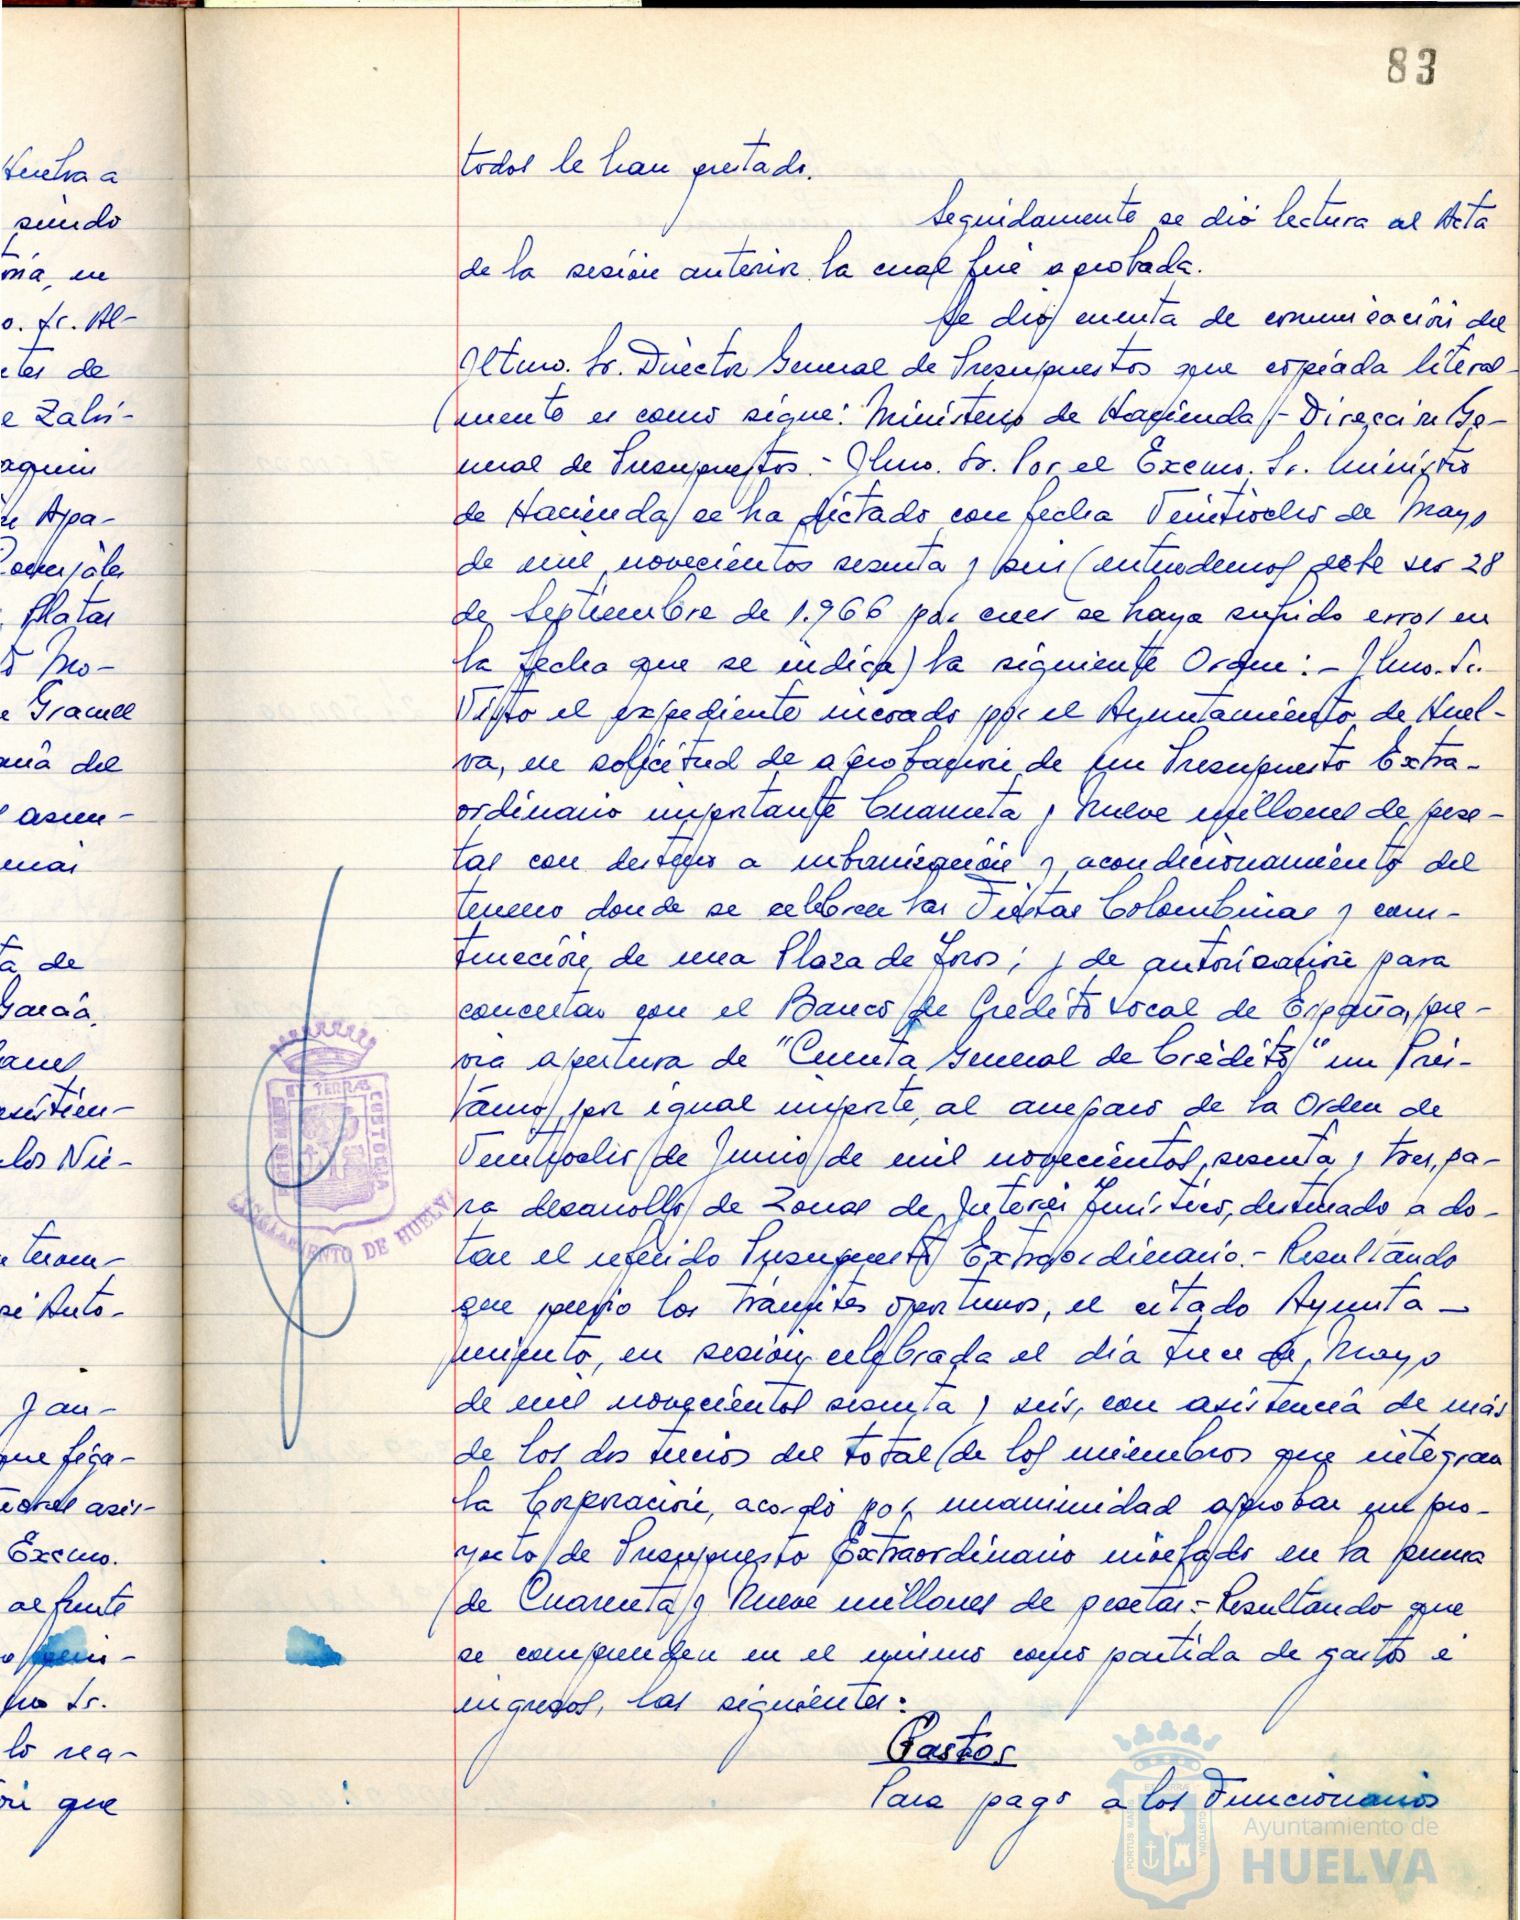 83
Huelva a
siendo
toria, en
o. Sr. Al-
de
e Zalvi-
aquin
Apa-
Conzáles
Platas
Mo-
Gracia
del
asun-
de
García,
los Nie-
Anto-
Jau-
que figu-
asis-
Excmo.
al frente
mo Sr.
lo rea-
que
todos le han prestado.
Seguidamente se dió lectura al Acta
de la sesión anterior la cual fué aprobada.
Se dió cuenta de comunicación del
Iltmo. Sr. Director General de Presupuestos que copiada literal-
mente es como sigue: Ministerio de Hacienda.- Dirección Ge-
neral de Presupuestos.- Ilmo. Sr. Por el Excmo. Sr. Ministro
de Hacienda, se ha dictado con fecha Veintiocho de Mayo
de mil novecientos sesenta y seis (entendemos debe ser 28
de Septiembre de 1.966 por creer se haya sufrido error en
la fecha que se indica) la siguiente Orden: - Ilmo. Sr.
Visto el expediente incoado por el Ayuntamiento de Huel-
va, en solicitud de aprobación de un Presupuesto Extra-
ordinario importante Cuarenta y Nueve millones de pese-
tas con destino a urbanización y acondicionamiento del
terreno donde se celebren las Fiestas Colombinas y cons-
trucción de una Plaza de Toros; y de autorización para
concertar con el Banco de Crédito Local de España, pre-
via apertura de "Cuenta General de Crédito" un Prés-
tamo, por igual importe, al amparo de la Orden de
Veintiocho de Junio de mil novecientos sesenta y tres, pa-
ra desarrollo de Zonas de Interés Turístico, destinado a do-
tar el referido Presupuesto Extraordinario.- Resultando
que previo los trámites oportunos, el citado Ayunta-
miento, en sesión celebrada el día trece de Mayo
de mil novecientos sesenta y seis, con asistencia de más
de los dos tercios del total de los miembros que integran
la Corporación, acordó por unanimidad aprobar un pro-
yecto de Presupuesto Extraordinario nivelado en la suma
de Cuarenta y Nueve millones de pesetas.- Resultando que
se comprenden en el mismo como partida de gastos e
ingresos, las siguientes:
Gastos
Para pago a los Funcionarios
PORTUS MARIS ET TERRAE CUSTODIA
EXCMO. AYUNTAMIENTO DE HUELVA
Ayuntamiento de
HUELVA